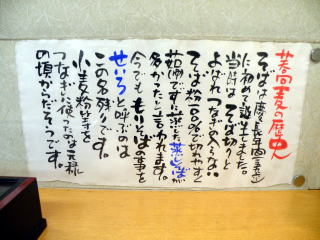 蕎麦の歴史
そばは慶長年間
に初めて誕生しました。
当時は そば切りと
よばれ つなぎの入らない
そば粉一〇〇%で切れやすく
茹でずに蒸した蒸しそばが
多かったと言われます。
今でも もりそばの事を
せいろと呼ぶのは
この名残りです。
小麦粉等を
つなぎに使ったのは元禄
の頃からだそうです。